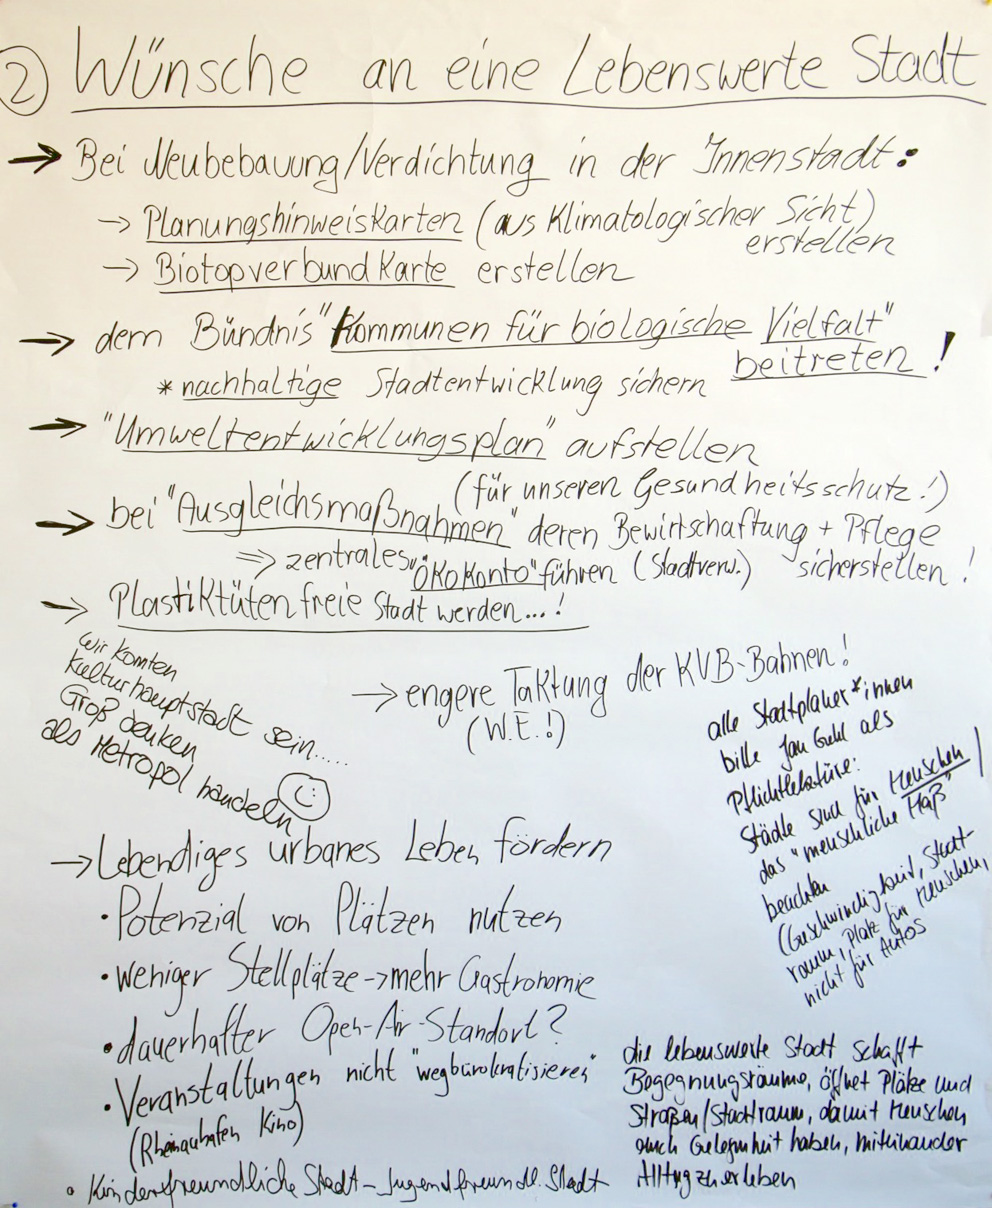 2 Wünsche an eine Lebenswerte Stadt
→ Bei Neubebauung/Verdichtung in der Innenstadt:
→ Planungshinweiskarten (aus Klimatologischer Sicht)
erstellen
→ Biotopverbund Karte erstellen
→ dem Bündnis "Kommunen für biologische Vielfalt"
beitreten !
* nachhaltige Stadtentwicklung sichern
→ "Umweltentwicklungsplan" aufstellen
(für unseren Gesundheitsschutz!)
→ bei "Ausgleichsmaßnahmen" deren Bewirtschaftung + Pflege
sicherstellen!
⇒ zentrales "Ökokonto" führen (Stadtverw.)
→ Plastiktüten freie Stadt werden...!
Wir könnten
Kulturhauptstadt sein.....
Groß denken
als Metropol handeln ☺
→ engere Taktung der KVB-Bahnen!
(W.E.!)
alle Stadtplaner*innen
bitte Jan Gehl als
Pflichtlektüre:
Städte sind für Menschen /
das "menschliche Maß"
beachten
(Geschwindigkeit, Stadt-
raum, Platz für Menschen,
nicht für Autos
→ Lebendiges urbanes Leben fördern
• Potenzial von Plätzen nutzen
• weniger Stellplätze → mehr Gastronomie
• dauerhafter Open-Air-Standort?
• Veranstaltungen nicht "wegbürokratisieren"
(Rheinauhafen Kino)
• Kinderfreundliche Stadt - Jugendfreundl. Stadt
die lebenswerte Stadt schafft
Begegnungsräume, öffnet Plätze und
Straßen/Stadtraum, damit Menschen
auch Gelegenheit haben, miteinander
Alltag zu erleben